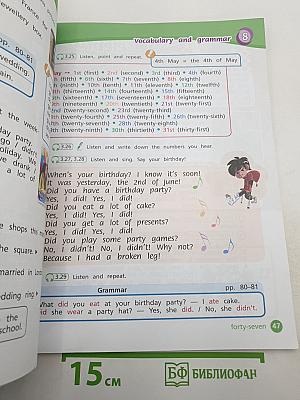 Vocabulary and grammar 8
3.25 Listen, point and repeat.
4th May = the 4th of May
1st (first) 2nd (second) 3rd (third) 4th (fourth)
(fifth) 6th (sixth) 7th (seventh) 8th (eighth)
(ninth) 10th (tenth) 11th (eleventh) 12th (twelfth)
(thirteenth) 14th (fourteenth) 15th (fifteenth)
(sixteenth) 17th (seventeenth) 18th (eighteenth)
(nineteenth) 20th (twentieth) 21st (twenty-first)
(twenty-second) 23rd (twenty-third)
(twenty-fourth) 25th (twenty-fifth) 26th (twenty-sixth)
(twenty-seventh) 28th (twenty-eighth)
(twenty-ninth) 30th (thirtieth) 31st (thirty-first)
3.26 Listen and write down the numbers you hear.
3.27, 3.28 Listen and sing. Say your birthday!
When's your birthday? I know it's soon!
It was yesterday, the 2nd of June!
Did you have a birthday party?
Yes, I did! Yes, I did!
Did you eat a lot of cake?
Yes, I did! Yes, I did!
Did you get a lot of presents?
Yes, I did! Yes, I did!
Did you play some party games?
No, I didn't! No, I didn't! Why not?
Because I had a broken leg!
3.29 Listen and repeat.
Grammar pp. 80–81
What did you eat at your birthday party? — I ate cake.
Did she wear a party hat? — Yes, she did. / No, she didn't.
forty-seven 47
pp. 80–81
wedding.
the week.
party,
did
holiday. We
a lot of
shops
the square
married in
wedding ring
the
school.
15 СМ
БФ БИБЛИОФАН